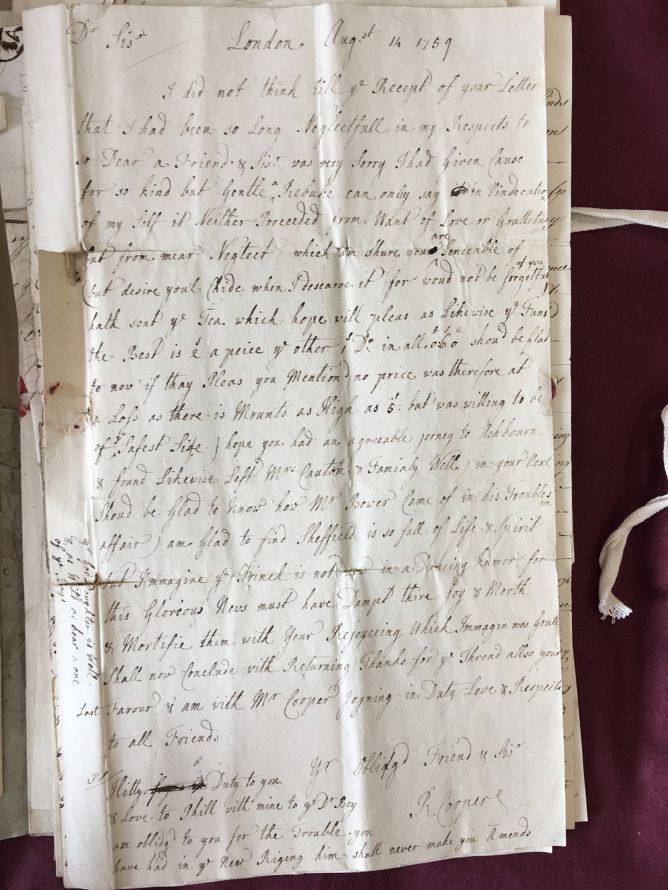 Dr Sisr London Augst 14 1759
I did not think till ye Recept of your Letter
that I had been so Long Neglectfull in my Respects to
so Dear a Friend & Sisr was very sorry I had Given Cause
for so kind but Gentle a Rebuke can only say in Vindecation
of my self it Neither Proceeded from Want of Love or Grattetuey
but from mear Neglect which am shure your are Senceable of
but desire youl Chide when I deserve it for woud not be forgetfull of you
hath sent ye Tea which hope will pleas as Likewise ye Fans
the Best is a peice ye other Do. in all shou'd be Glad
to now if thay Pleas you Mention'd no price was therefore at
a Loss as there is Mounts as High as 5s: but was willing to be
of ye Safest Side I hope you had an agreeable jorney to Ashbourn
& found Likewise Left Mrs Cauton & Familly Well I in your Next
Shoud be Glad to know how Mr Bower Came of in his Troublesom
affair I am Glad to find Sheffield is so full of Life & Spirit
but Immagine ye Frinch is not in a Dancing humor for
this Gloreous News must have Dampt thire Joy & Morth
& Mortifie them with Your Rejoyceing Which Immagin was Grate
Shall now Conclude with Returning Thanks for ye Thread allso your
Last Favour & am with Mr Cooper Joyning in Duty Love & Respects
to all Friends
Yr Obligd Friend & Sisr
R Cooper
Ps
Kitty Duty to you
& Love to Phill with mine to ye Dr Boy
am oblidg to you for the Trouble you
have had in ye New Riging him shall never make you Amends
is Well
as dear a one